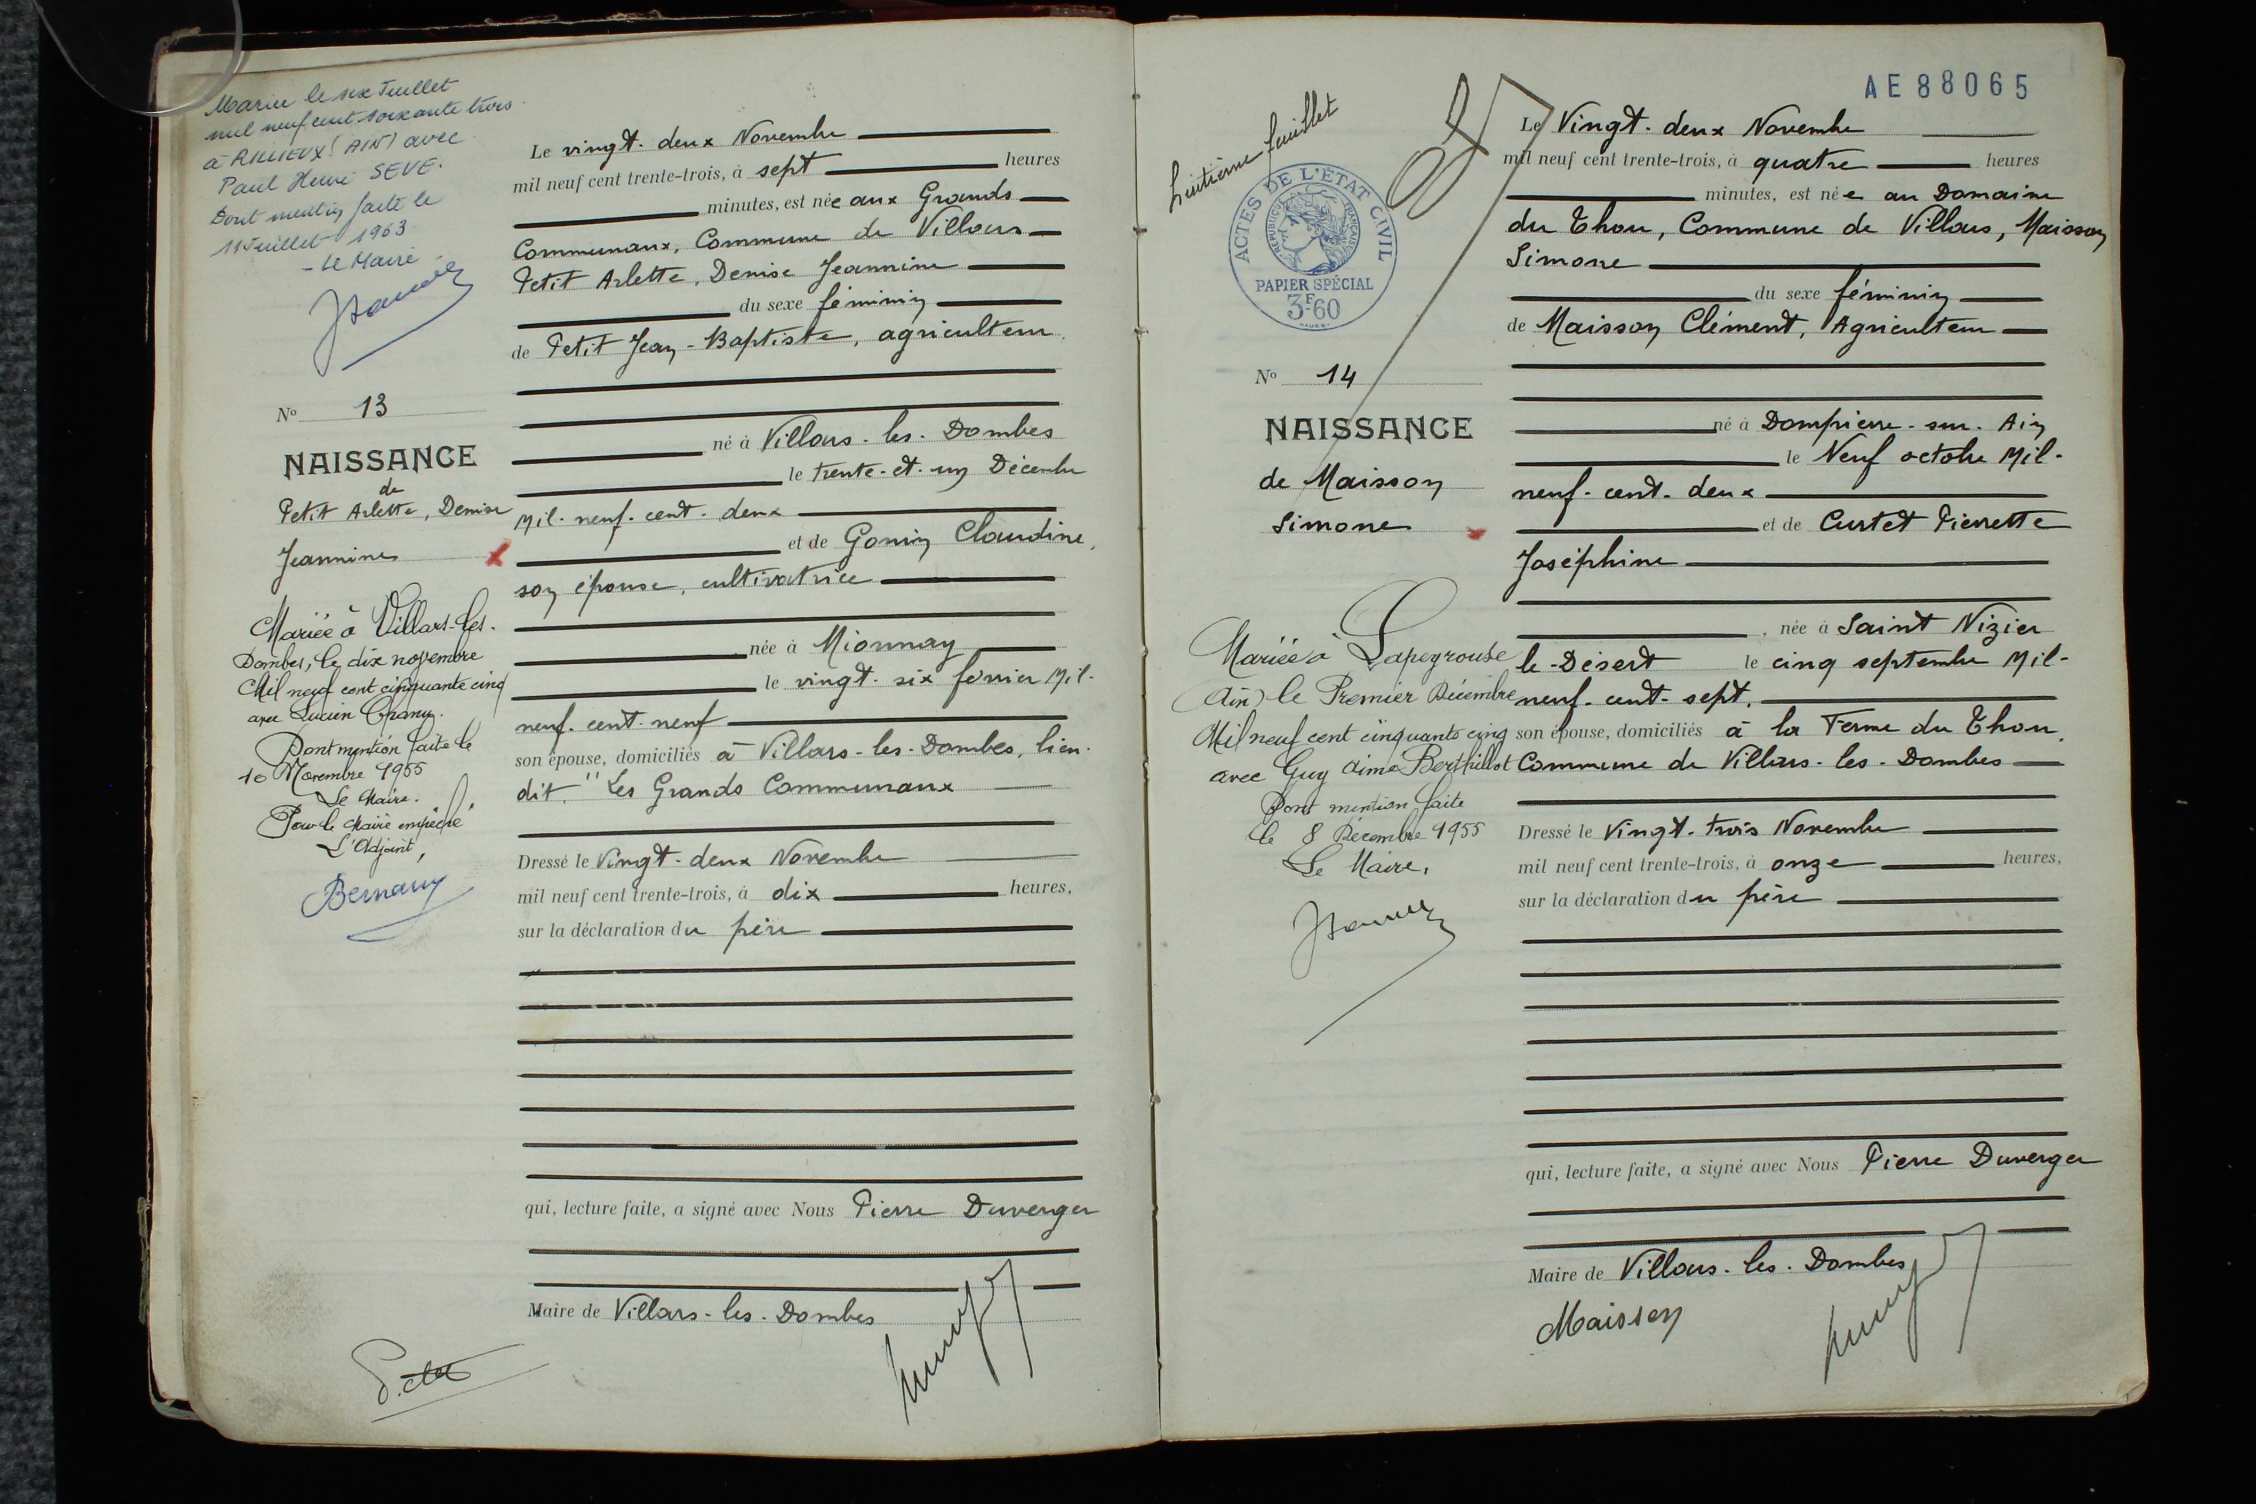 Mariée le six Juillet
mil neuf cent soixante trois
à RILLIEUX (AIN) avec
Paul Henri SEVE.
Dont mention faite le
11 Juillet 1963
- Le Maire
Le vingt-deux Novembre
mil neuf cent trente-trois, à sept heures
minutes, est née aux Grands
Communaux, Commune de Villars
Petit Arlette, Denise Jeannine
du sexe féminin
de Petit Jean-Baptiste, agriculteur
né à Villars-les-Dombes
le trente-et-un Décembre
mil-neuf-cent-deux
et de Gonin Claudine,
son épouse, cultivatrice
née à Mionnay
le vingt-six février Mil-
neuf-cent-neuf
son épouse, domiciliés à Villars-les-Dombes, lieu-
dit "Les Grands Communaux"
Dressé le Vingt-deux Novembre
mil neuf cent trente-trois, à dix heures,
sur la déclaration du père
qui, lecture faite, a signé avec Nous Pierre Duverger
Maire de Villars-les-Dombes
Petit
No 13
NAISSANCE
de
Petit Arlette, Denise
Jeannine
Mariée à Villars-les-
Dombes, le dix novembre
Mil neuf cent cinquante cinq
avec Lucien
Dont mention faite le
10 Novembre 1955
Le Maire.
Pour le Maire empêché
L'Adjoint,
huitième feuillet
ACTES DE L'ÉTAT CIVIL
RÉPUBLIQUE FRANÇAISE
PAPIER SPÉCIAL
3F60
AE88065
Le Vingt-deux Novembre
mil neuf cent trente-trois, à quatre heures
minutes, est née au Domaine
du Thou, Commune de Villars, Maisson
Simone
du sexe féminin
de Maisson Clément, Agriculteur
né à Dompierre-sur-Ain
le Neuf octobre Mil-
neuf-cent-deux
et de Curtet Pierrette
Joséphine
, née à Saint Nizier
le-Désert le cinq septembre Mil-
neuf-cent-sept,
son épouse, domiciliés à la Ferme du Thou,
Commune de Villars-les-Dombes
Dressé le Vingt-trois Novembre
mil neuf cent trente-trois, à onze heures,
sur la déclaration du père
qui, lecture faite, a signé avec Nous Pierre Duverger
Maire de Villars-les-Dombes
Maisson
No 14
NAISSANCE
de Maisson
Simone
Mariée à Lapeyrouse
(Ain) le Premier Décembre
Mil neuf cent cinquante cinq
avec Guy Aimé Berthillot
Dont mention faite
le 8 Décembre 1955
Le Maire,